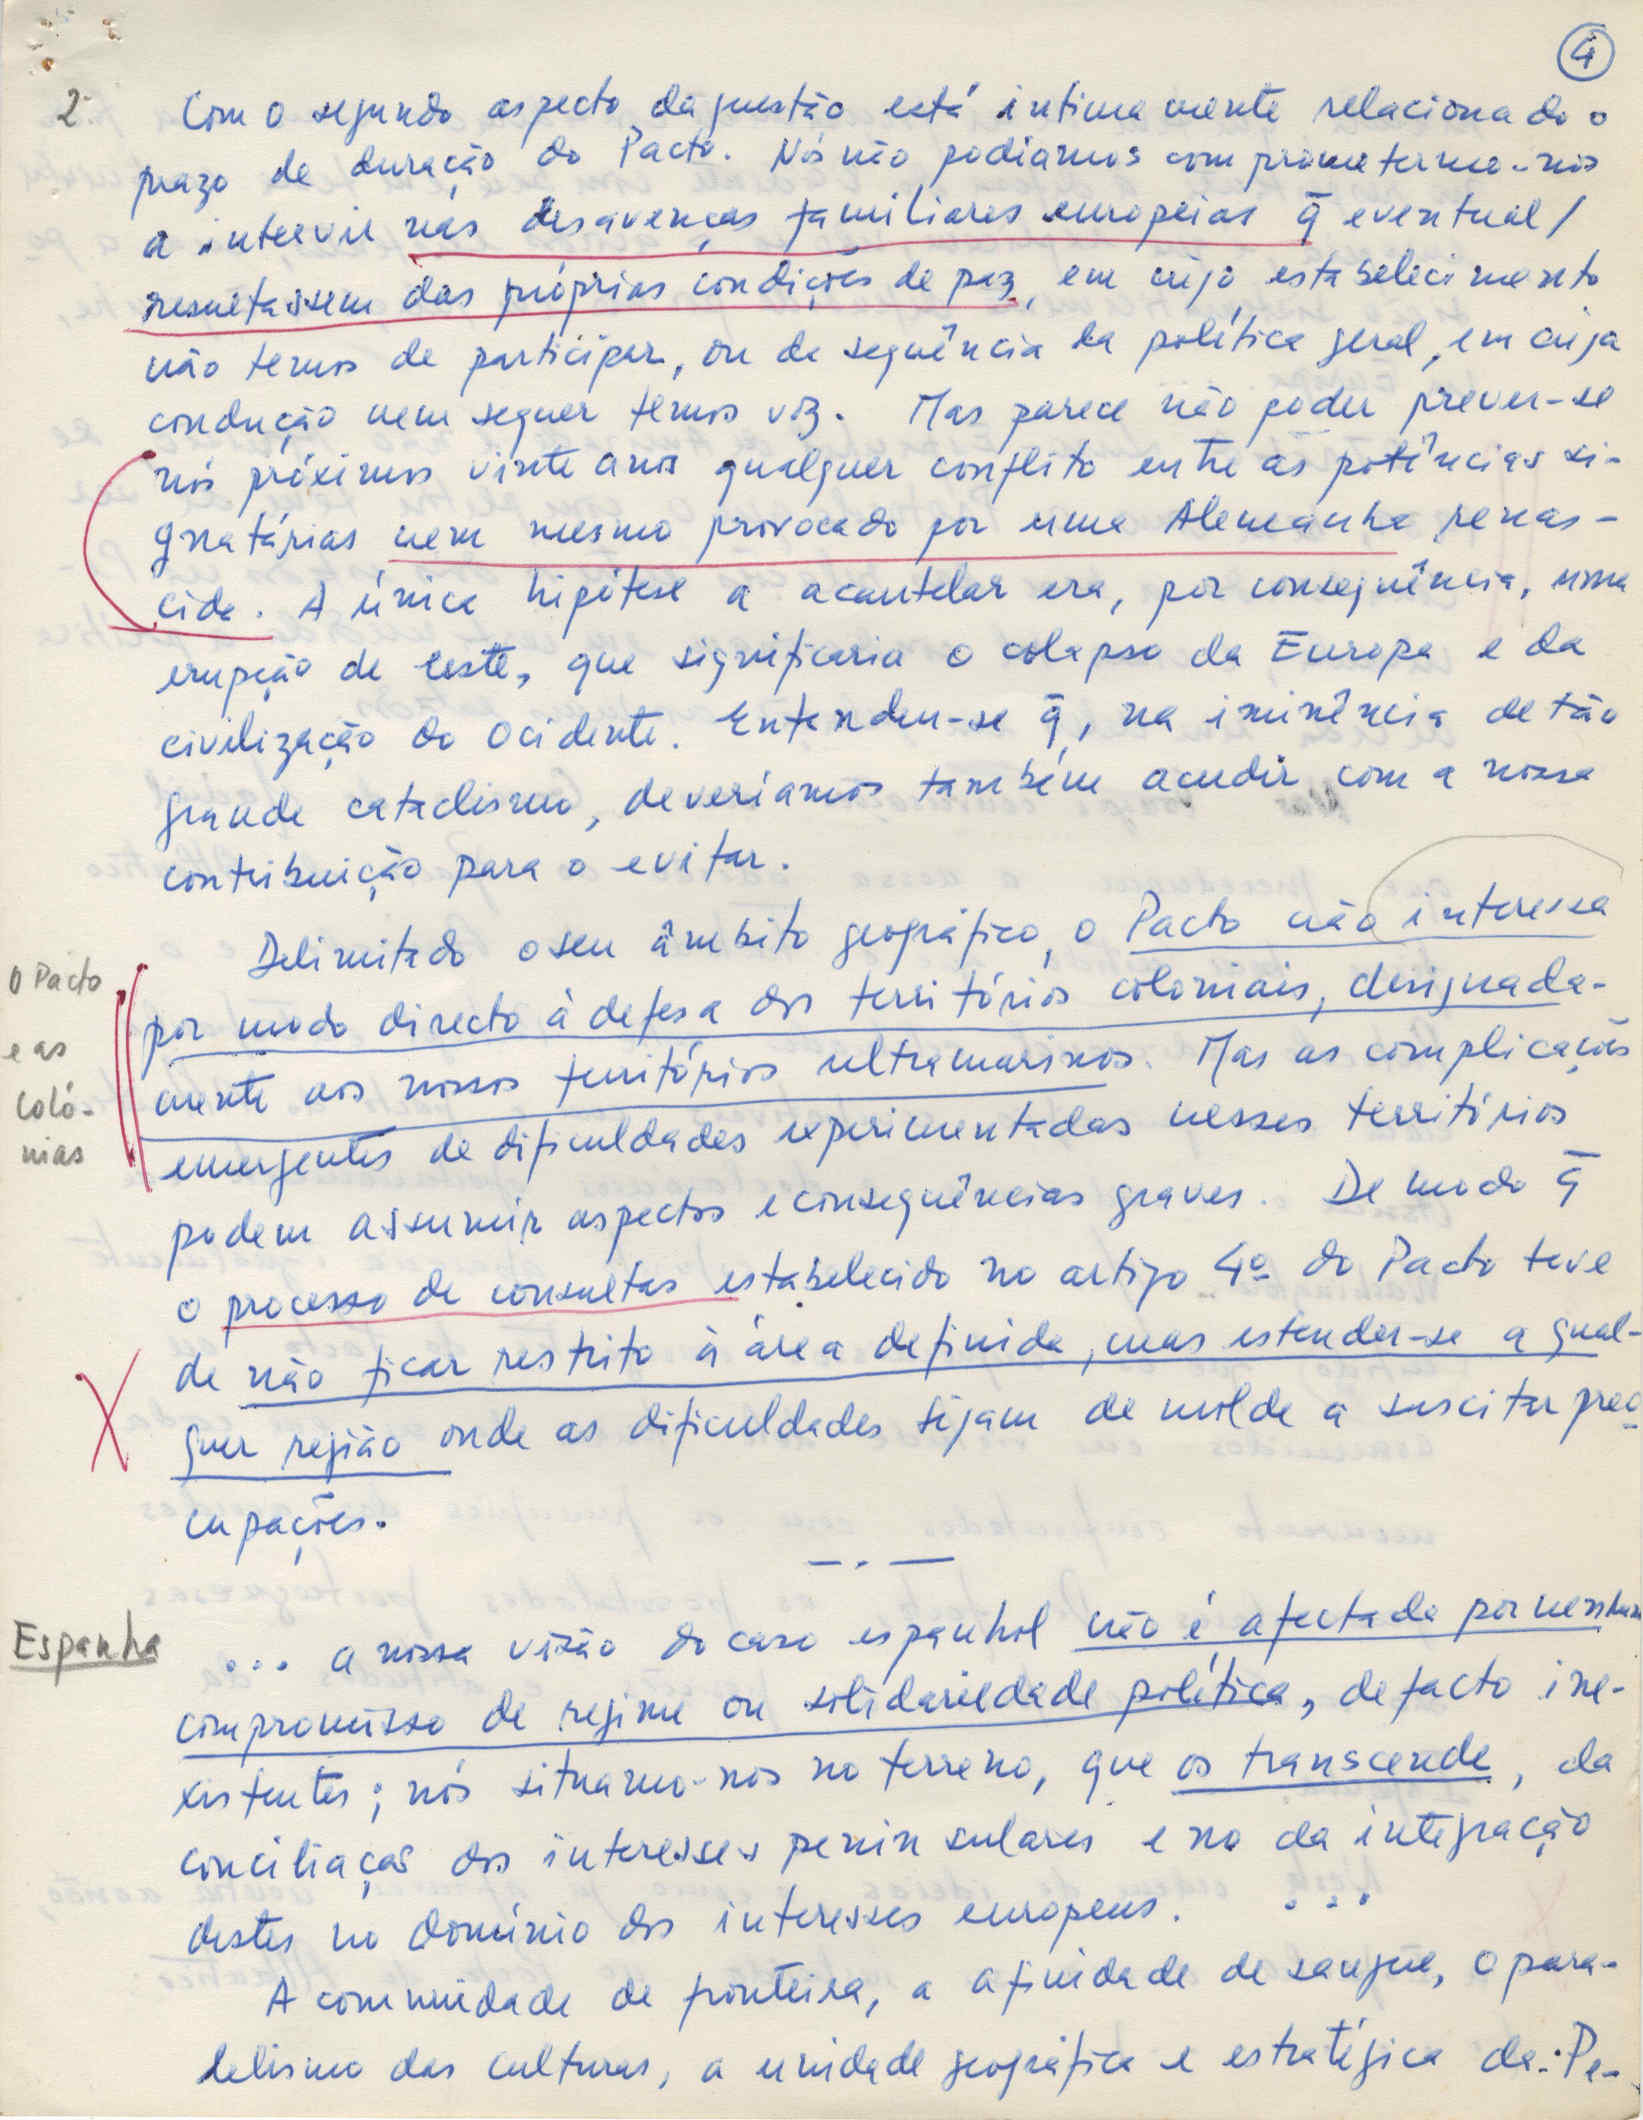 4
2- Com o segundo aspecto da questão está intimamente relacionado o
prazo de duração do Pacto. Nós não podiamos comprometermo-nos
a intervir nas desavenças familiares europeias q̄ eventual/
resultassem das próprias condições de paz, em cujo estabelecimento
não temos de participar, ou da sequência da política geral, em cuja
condução nem sequer temos voz. Mas parece não poder prever-se
nos próximos vinte anos qualquer conflito entre as potências si-
gnatárias nem mesmo provocado por uma Alemanha renas-
cida. A única hipótese a acautelar era, por consequência, uma
erupção de leste, que significaria o colapso da Europa e da
civilização do Ocidente. Entendeu-se q̄, na iminência de tão
grande cataclismo, deveríamos também acudir com a nossa
contribuição para o evitar.
Delimitado o seu âmbito geográfico, o Pacto não interessa
O Pacto
por modo directo à defesa dos territórios coloniais, designada-
e as
mente aos nossos territórios ultramarinos. Mas as complicações
Coló-
emergentes de dificuldades experimentadas nesses territórios
nias
podem assumir aspectos e consequências graves. De modo q̄
o processo de consultas estabelecido no artigo 4º do Pacto teve
de não ficar restrito à área definida, mas estender-se a qual-
quer região onde as dificuldades sejam de molde a suscitar preo-
cupações.
— . —
Espanha
... a nossa visão do caso espanhol não é afectada por nenhum
compromisso de regime ou solidariedade política, de facto ine-
xistentes; nós situamo-nos no terreno, que os transcende, da
conciliação dos interesses peninsulares e no da integração
destes no domínio dos interesses europeus. ...
A comunidade de fronteira, a afinidade de sangue, o para-
lelismo das culturas, a unidade geográfica e estratégica da Pe-